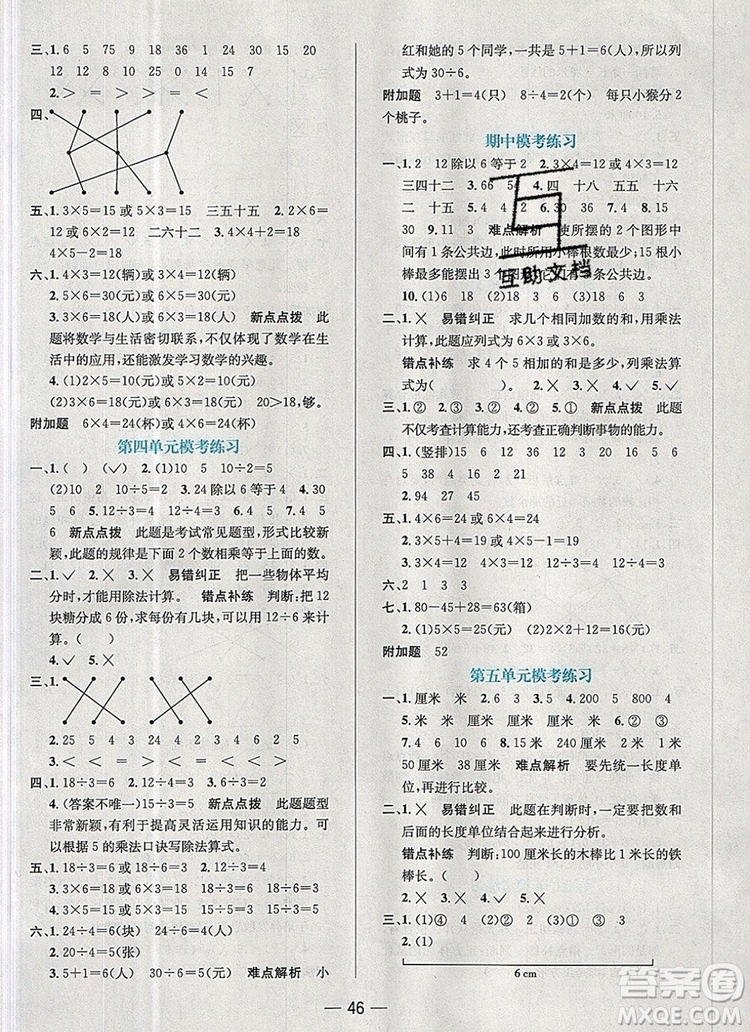 三、1.6 5 75 15 36 1 24 30 15 20
12 12 8 10 25 0 14 15 7
2.> = > = < <
四、
五、1.3×5=15或5×3=15 三五十五 2.2×6=
12或6×2=12 二六十二 3.4×3=12
4.2×5-2=
六、1.4×3=12(辆)或3×4=12(辆)
2.5×6=30(元)或6×5=30(元)
3.3×6=18(人)或6×3=18(人) 新点点拨 此
题将数学与生活密切联系,不仅体现了数学在生
活中的应用,还能激发学习数学的兴趣。
4.(1)2×5=10(元)或5×2=10(元)
(2)3×6=18(元)或6×3=18(元) 20>18,够。
附加题 6×4=24(杯)或4×6=24(杯)
第四单元模考练习
一、1.( ) (✓) 2.(1)10 5 10÷2=5
(2)10 2 10÷5=2 3.24除以6等于4 4.30
5 6 5.6 新点点拨 此题是考试常见题型,形式比较新
颖,此题的规律是下面2个数相乘等于上面的数。
二、1.✓ 2.× 3.× 易错纠正 把一些物体平均
分时,才能用除法计算。 错点补练 判断:把12
块糖分成6份,求每份有几块,可以用12÷6来计
算。( )
4.✓ 5.×
三、1.
2.25 5 4 5 4 2 3 4 6 2 5
3.< < = < = > > <
四、1.18÷3=6 2.12÷3=4 3.24÷4=6
4.(答案不唯一)15÷3=5 新点点拨 此题题型
非常新颖,有利于提高灵活运用知识的能力。可
以根据5的乘法口诀写除法算式。
五、1.12÷3=4或12÷4=3 2.18÷6=3
3.12÷2=6或12÷6=2 18÷3=6或18÷6=3
4.3×5=15或5×3=15 15÷5=3 15÷3=5
六、1.24÷4=6(块) 24÷6=4(块)
2.20÷4=5(张)
3.5+1=6(人) 30÷6=5(元) 难点解析 小
红和她的5个同学,一共是5+1=6(人),所以列
式为30÷6。
附加题 3+1=4(只) 8÷4=2(个) 每只小猴分2
个桃子。
期中模考练习
一、1.2 12除以6等于2 2.3×4=12或4×3=12
三四十二 3.66 54 4.四 十八 五五 十六
二 十五 5.4 4 2 6.30 36 7.4 8.15
30 9.11 3 难点解析 使所摆的2个图形中
间有1条公共边,此时所用小棒根数最少。11根小
棒最多能摆出3个
10.(1)6 18 (2)18 3 (3)18 6
二、1.× 易错纠正 求几个相同加数的和,用乘法
计算,此题应列式为6×3或3×6。
错点补练 求4个5相加的和是多少,列乘法算
式为( )。 2.✓ 3.✓ 4.×
三、1.② 2.② 3.② 4.② 5.① 新点点拨 此题
不仅考查计算能力,还考查正确判断事物的能力。
四、1.(竖排)15 2 16 5 24 15 6
5 38 4 16 2 21 6
2.94 27 45
五、1.4×6=24或6×4=24
2.3×5+4=19或4×5-1=19
3.24÷4=6 4.18÷6=3
六、2 1 3 3
七、1.80-45+28=63(箱)
2.(1)5×5=25(元) (2)5×2+2=12(元)
附加题 52
第五单元模考练习
一、1.厘米 米 米 2.6 3 3.5 4.200 5 800 4
5.厘米 米 厘米 厘米 米 6.② ① ③
7.4 0 6 6 8.> < = = < > 9.15厘米
50厘米 5米 38厘米 难点解析 先统一长度单
位,再进行比较。
二、1.× 易错纠正 此题在判断时,一定要把数和
后面的长度单位结合起来进行分析。
错点补练 判断:100厘米长的木棒比1米长的铁
棒长。( ) 2.✓ 3.✓ 4.✓ 5.×
三、1.(1)④ 4 (2)② 2 (3)① 3
2.(1)
6 cm
互助文档
答案圈
MXQE.COM
46